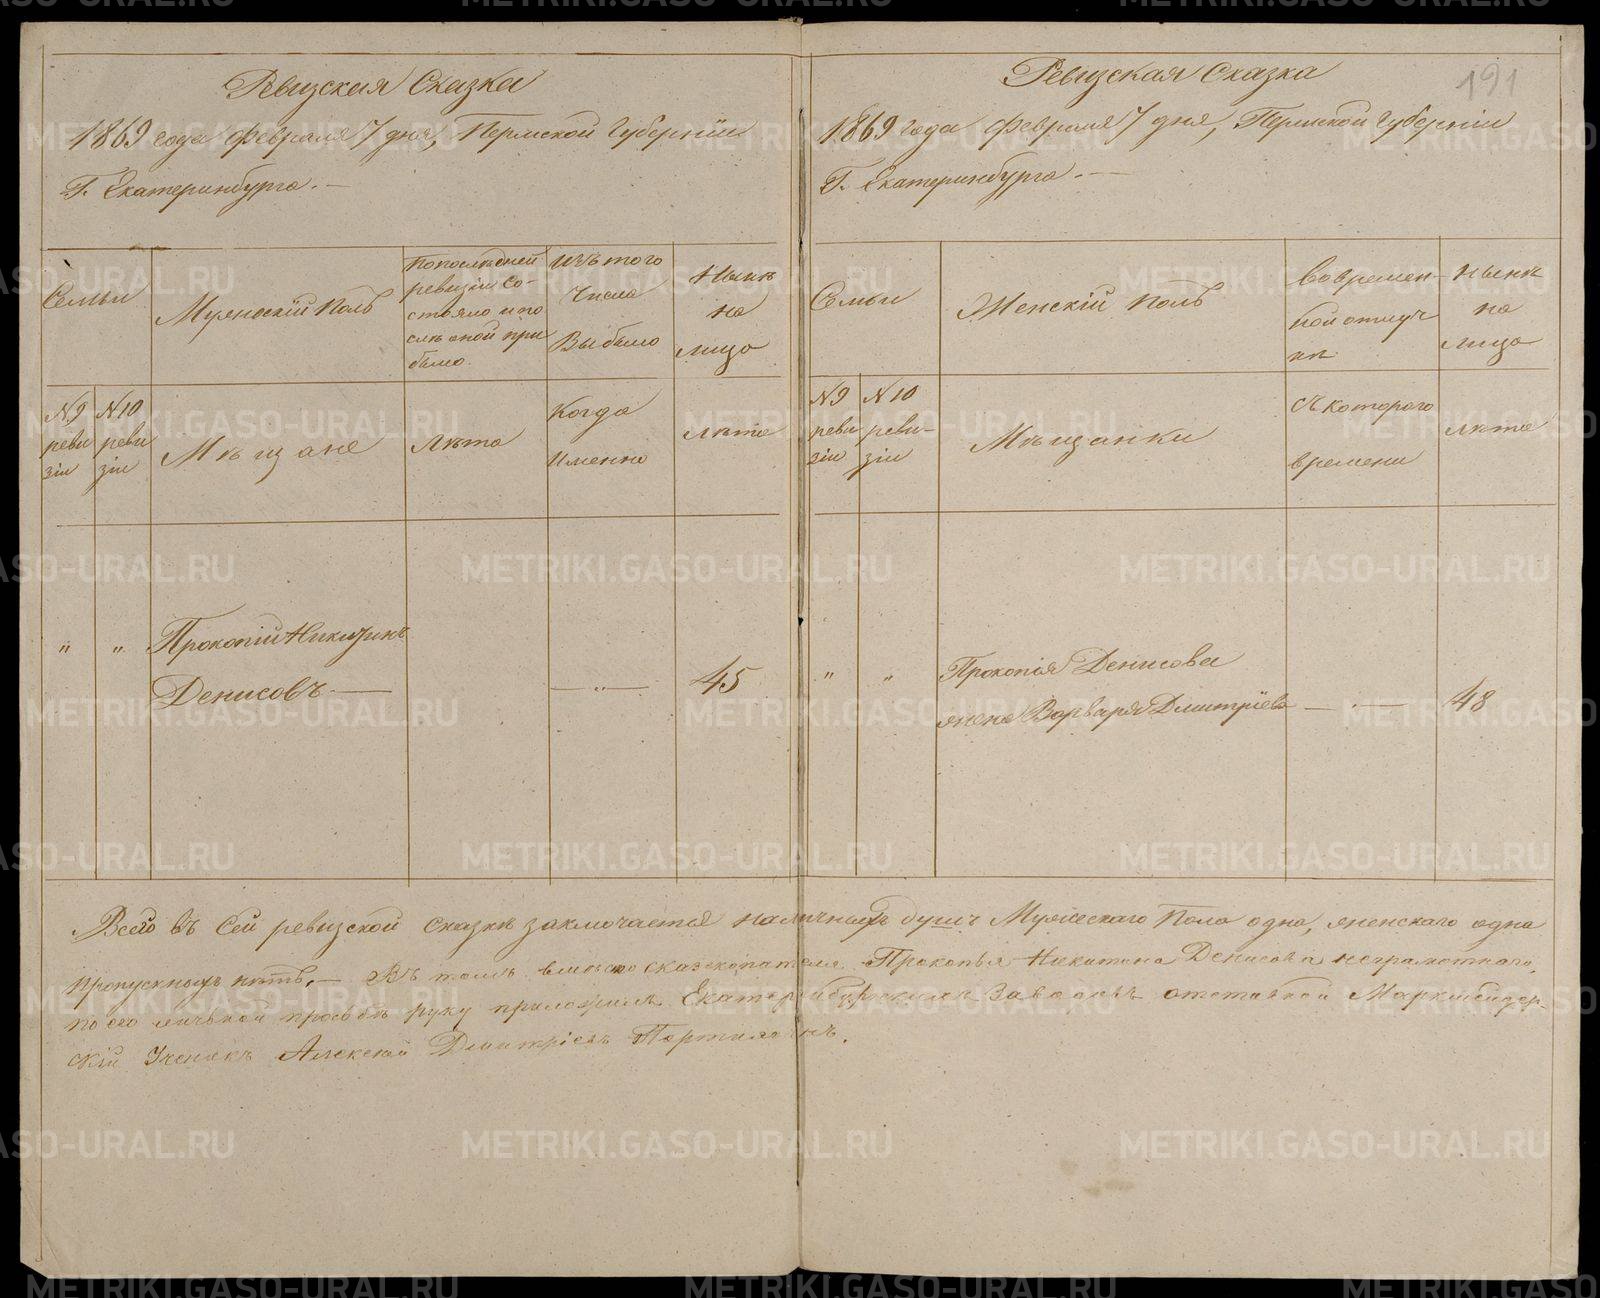 Ревизская Сказка
1869 года февраля 7 дня, Пермской Губерніи
Г. Екатеринбурга.
Семьи
Мужескій Полъ
По последней
ревизіи Со-
стояло и по
слѣ оной при
было
Изъ того
Числа
Выбыло
Нынѣ
на
лицо
№ 9
реви
зіи
№ 10
реви
зіи
Мѣщане
Лѣта
Когда
Именно
Лѣта
" " Прокопій Никитинъ
Денисовъ — — " — 45
191
Ревизская Сказка
1869 года февраля 7 дня, Пермской Губерніи
Г. Екатеринбурга.
Семьи
Женскій Полъ
Во времен-
ной отлуч
кѣ
Нынѣ
на
лицо
№ 9
реви
зіи
№ 10
реви-
зіи
Мѣщанки
Съ котораго
времени
Лѣта
" " Прокопія Денисова
жена Варвара Дмитріева — 48
Всего въ Сей ревизской сказкѣ заключается наличныхъ душъ Мужескаго Пола одна, женскаго одна
пропускныхъ нѣтъ. — Въ томъ вмѣсто сказкоподателя Прокопья Никитина Денисова неграмотнаго,
по его личьной просьбѣ руку приложилъ Екатеринбургскихъ Заводовъ отставной Маркшейдер-
скій Ученикъ Алексѣй Дмитріевъ
METRIKI.GASO-URAL.RU